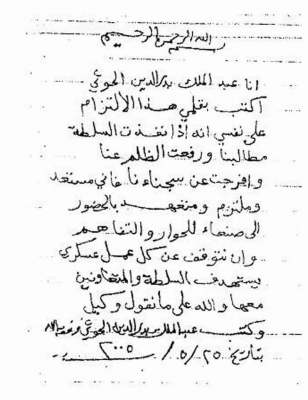 بسم الله الرحمن الرحيم
انا عبد الملك بدر الدين الحوثي
اكتب بقلمي هذا الالتزام
على نفسي انه إذا نفذت السلطة
مطالبنا ورفعت الظلم عنا
وافرجت عن سجنائنا فاني مستعد
وملتزم ومتعهد بالحضور
الى صنعاء للحوار والتفاهم
وان نتوقف عن كل عمل عسكري
يستهدف السلطة والمتعاونين
معها والله على ما نقول وكيل
وكتب عبد الملك بدر الدين الحوثي
بتاريخ ٢٥/٥/٢٠٠٥